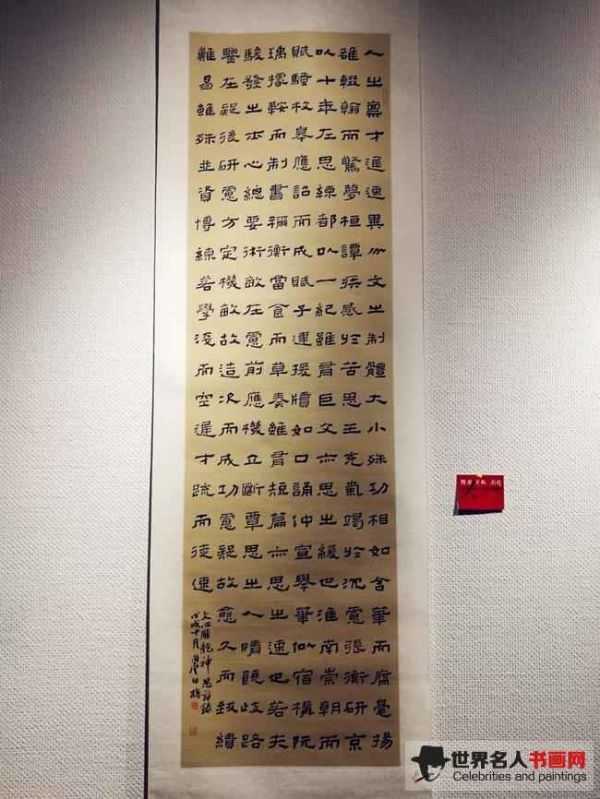 人之稟才遲速異分文之制體大小殊功相如含筆而腐毫揚
雄輟翰而驚夢桓譚疾感於苦思王充氣竭於沈慮張衡研京
以十年左思練都以一紀雖有巨文亦思之緩也淮南崇朝而
賦騷枚皋應詔而成賦子建援牘如口誦仲宣舉筆似宿構阮
瑀據鞍而制書禰衡當食而草奏雖有短篇亦思之速也若夫
駿發之士心總要術敏在慮前應機立斷覃思之人情饒歧路
鑒在疑後研慮方定機敏故造次而成功慮疑故愈久而致績
難易雖殊並資博練若學淺而空遲才疏而徒速
文心雕龍神思節錄
戊戌十月
世界名人书画网
Celebrities and paintings